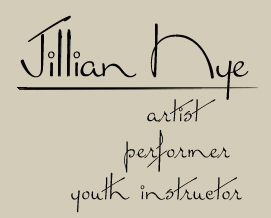 Jillian Nye
artist
performer
youth instructor